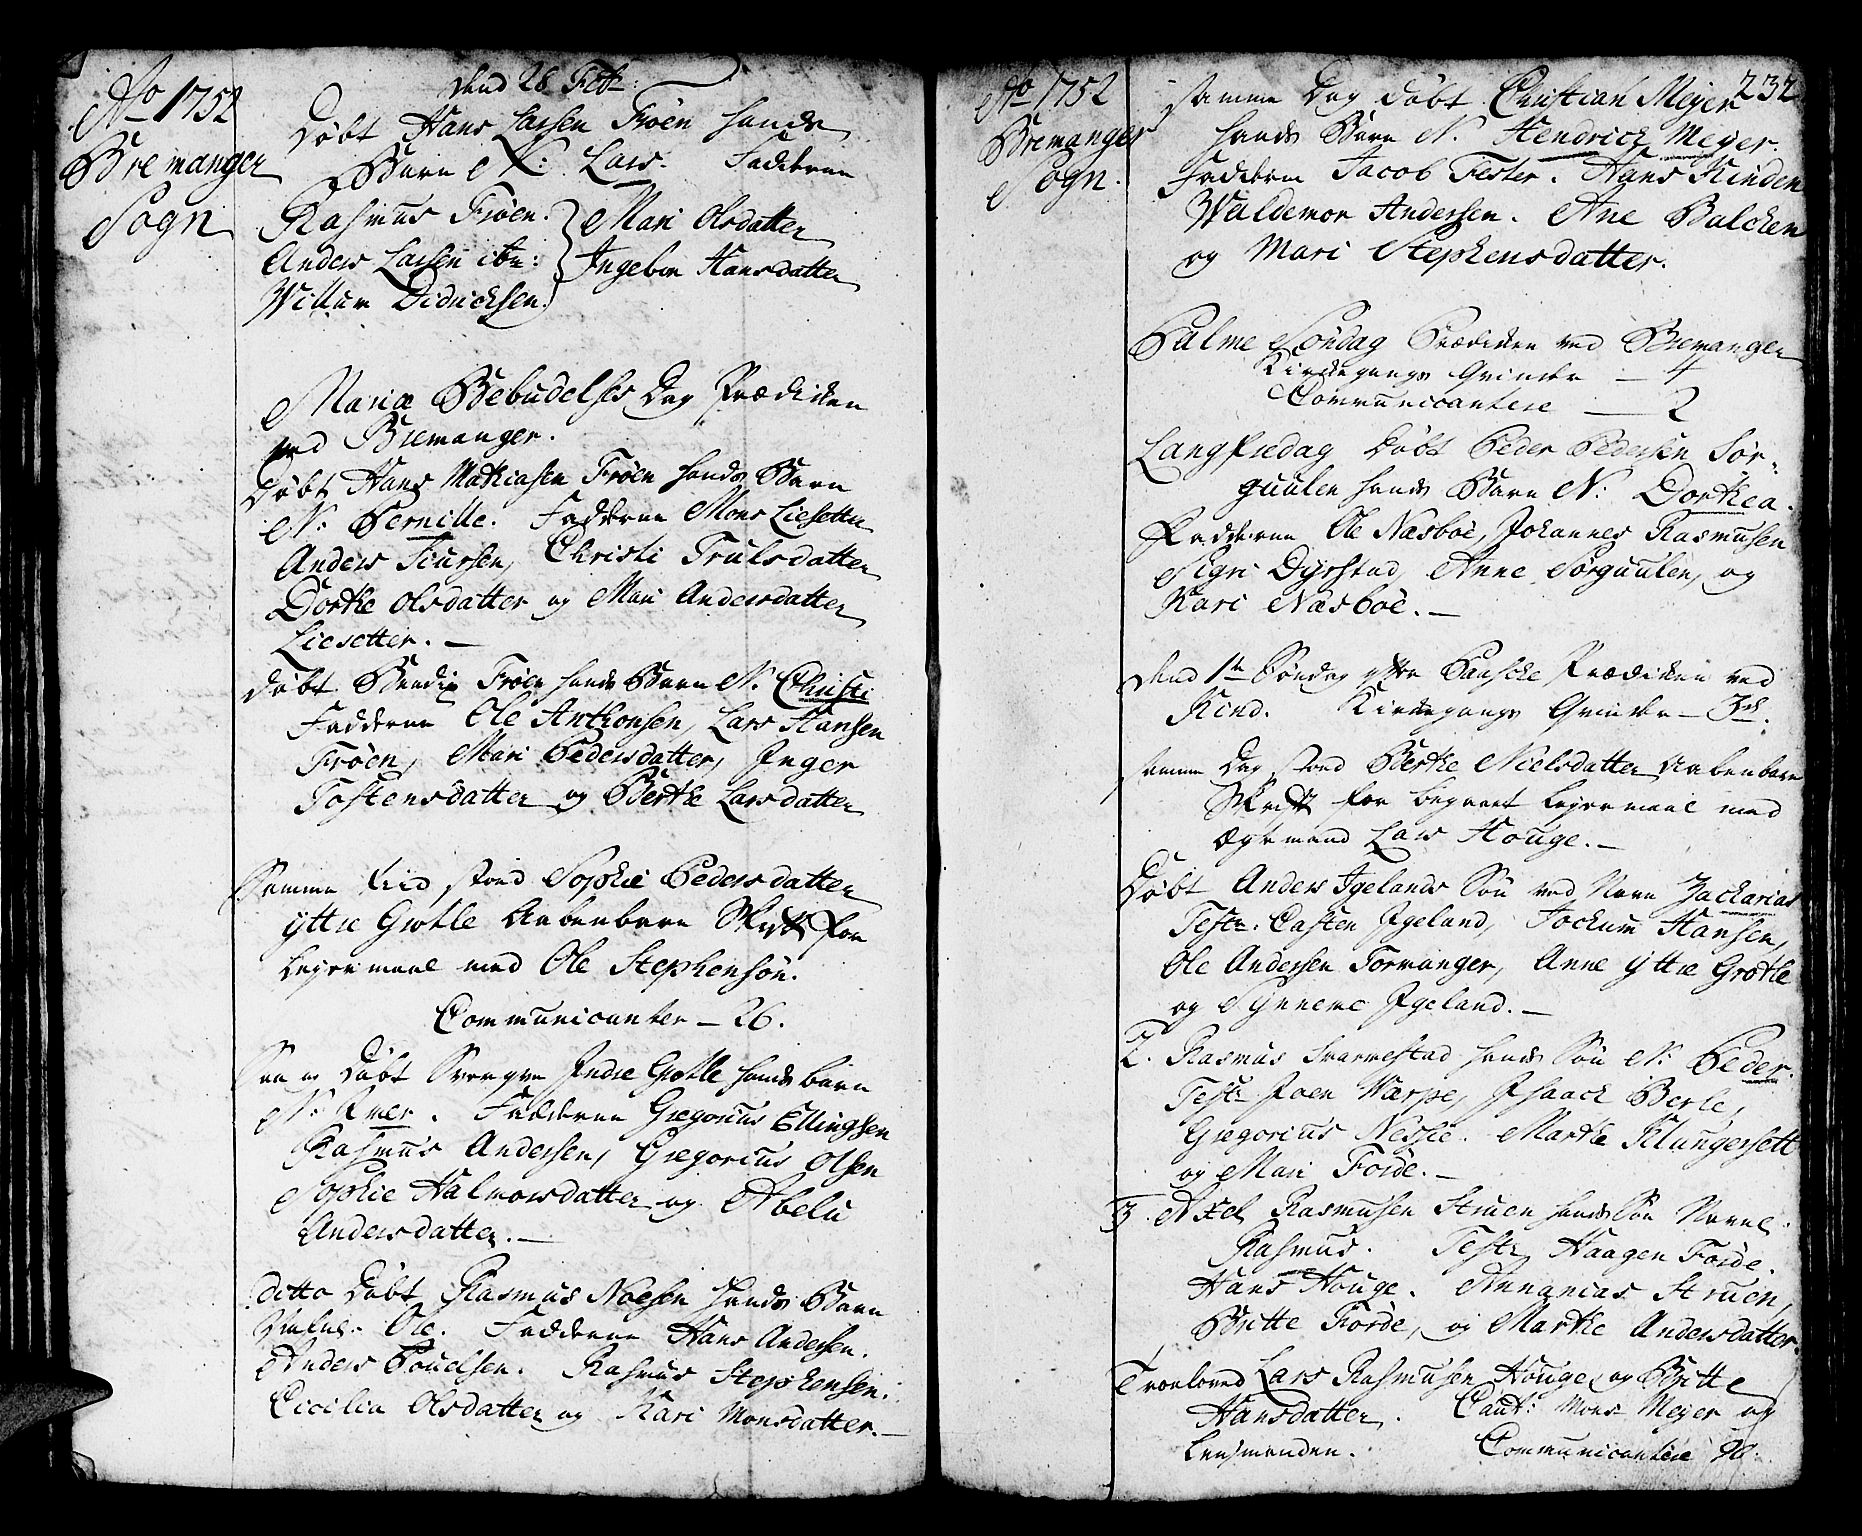 Ao 1752
Bremanger
Sogn
dend 28 Feb:
Døbt Hans Larsen Frøen hands
Barn N: Lars. Fadderne
Rasmus Frøen. Mari Olsdatter
Anders Larsen ibn: Ingebor Hansdatter
Willum Didricksen.
Mariæ Bebudelses Dag Prædiken
ved Bremanger.
Døbt Hans Mathiasen Frøen hands Barn
N: Pernille. Fadderne Mons Liesetter
Anders Siursen, Christi Trulsdatter
Dorthe Olsdatter og Mari Andersdatter
Liesetter. —
Døbt Bendix Frøen hands Barn N. Christi
Fadderne Ole Anthonsen, Lars Hansen
Frøen, Mari Pedersdatter, Inger
Tostensdatter og Berthe Larsdatter
Samme tiid stoed Sophie Pedersdatter
yttre Grotle Aabenbare Skrift for
Leyermaal med Ole Stephensøn.
Communicanter — 26.
Døbt Indre Grotle hands barn
N: Iver. Fadderne Gregorius Ellingsen
Rasmus Andersen, Gregorius Olsen
Sophie Halvorsdatter og Abelu
Andersdatter. —
ditto Døbt Rasmus Noesen hands Barn
Ole. Fadderne Hans Andersen.
Anders Pouelsen. Rasmus Stephensen.
Cicilia Olsdatter og Kari Monsdatter. —
232
Ao 1752
Bremanger
Sogn.
samme Dag døbt Christian Meyer
hands Barn N. Hendrich Meyer.
Fadderne Jacob Fester. Hans Kinden
Waldemor Andersen. Ane Balchen
og Mari Stephensdatter.
Palme Søndag Prædiken ved Bremanger
Kirkegangs Qvinder — 4
Communicantere — 2
Langfredag Døbt Peder Pedersen Sør-
guulen hands Barn N: Dorthea.
Fadderne Ole Næsboe, Johannes Rasmusen
Sigri Dyrstad, Anne Sørguulen, og
Kari Næsboe. —
dend 1te Søndag efter Paaske Prædiken ved
Kind. Kirkegangs Qvinder — 3
samme Dag stoed Berthe Nielsdatter Aabenbare
Skrift for begaaet Leyermaal med
Ægtemand Lars Houge. —
Døbt Anders Igelands Søn ved Navn Zacharias
Test: Casten Igeland, Jochum Hansen,
Ole Andersen Torvanger, Anne yttre Grotle
og Synneve Igeland. —
2. Rasmus Svarrestad hands Søn N: Peder.
Test: Joen Warpe, Isaach Berle,
Gregorius Nessie. Marthe Klungersett
og Mari Førde. —
3. Axel Rasmusen Struen hands Søn Navnl.
Rasmus. Test: Haagen Førde.
Hans Houge. Annanias Struen,
Britte Førde, og Marthe Andersdatter.
Troeloved Lars Rasmusen Houge og Britte
Hansdatter. Caut: Mons Meyer og
Lensmanden. Communicantere